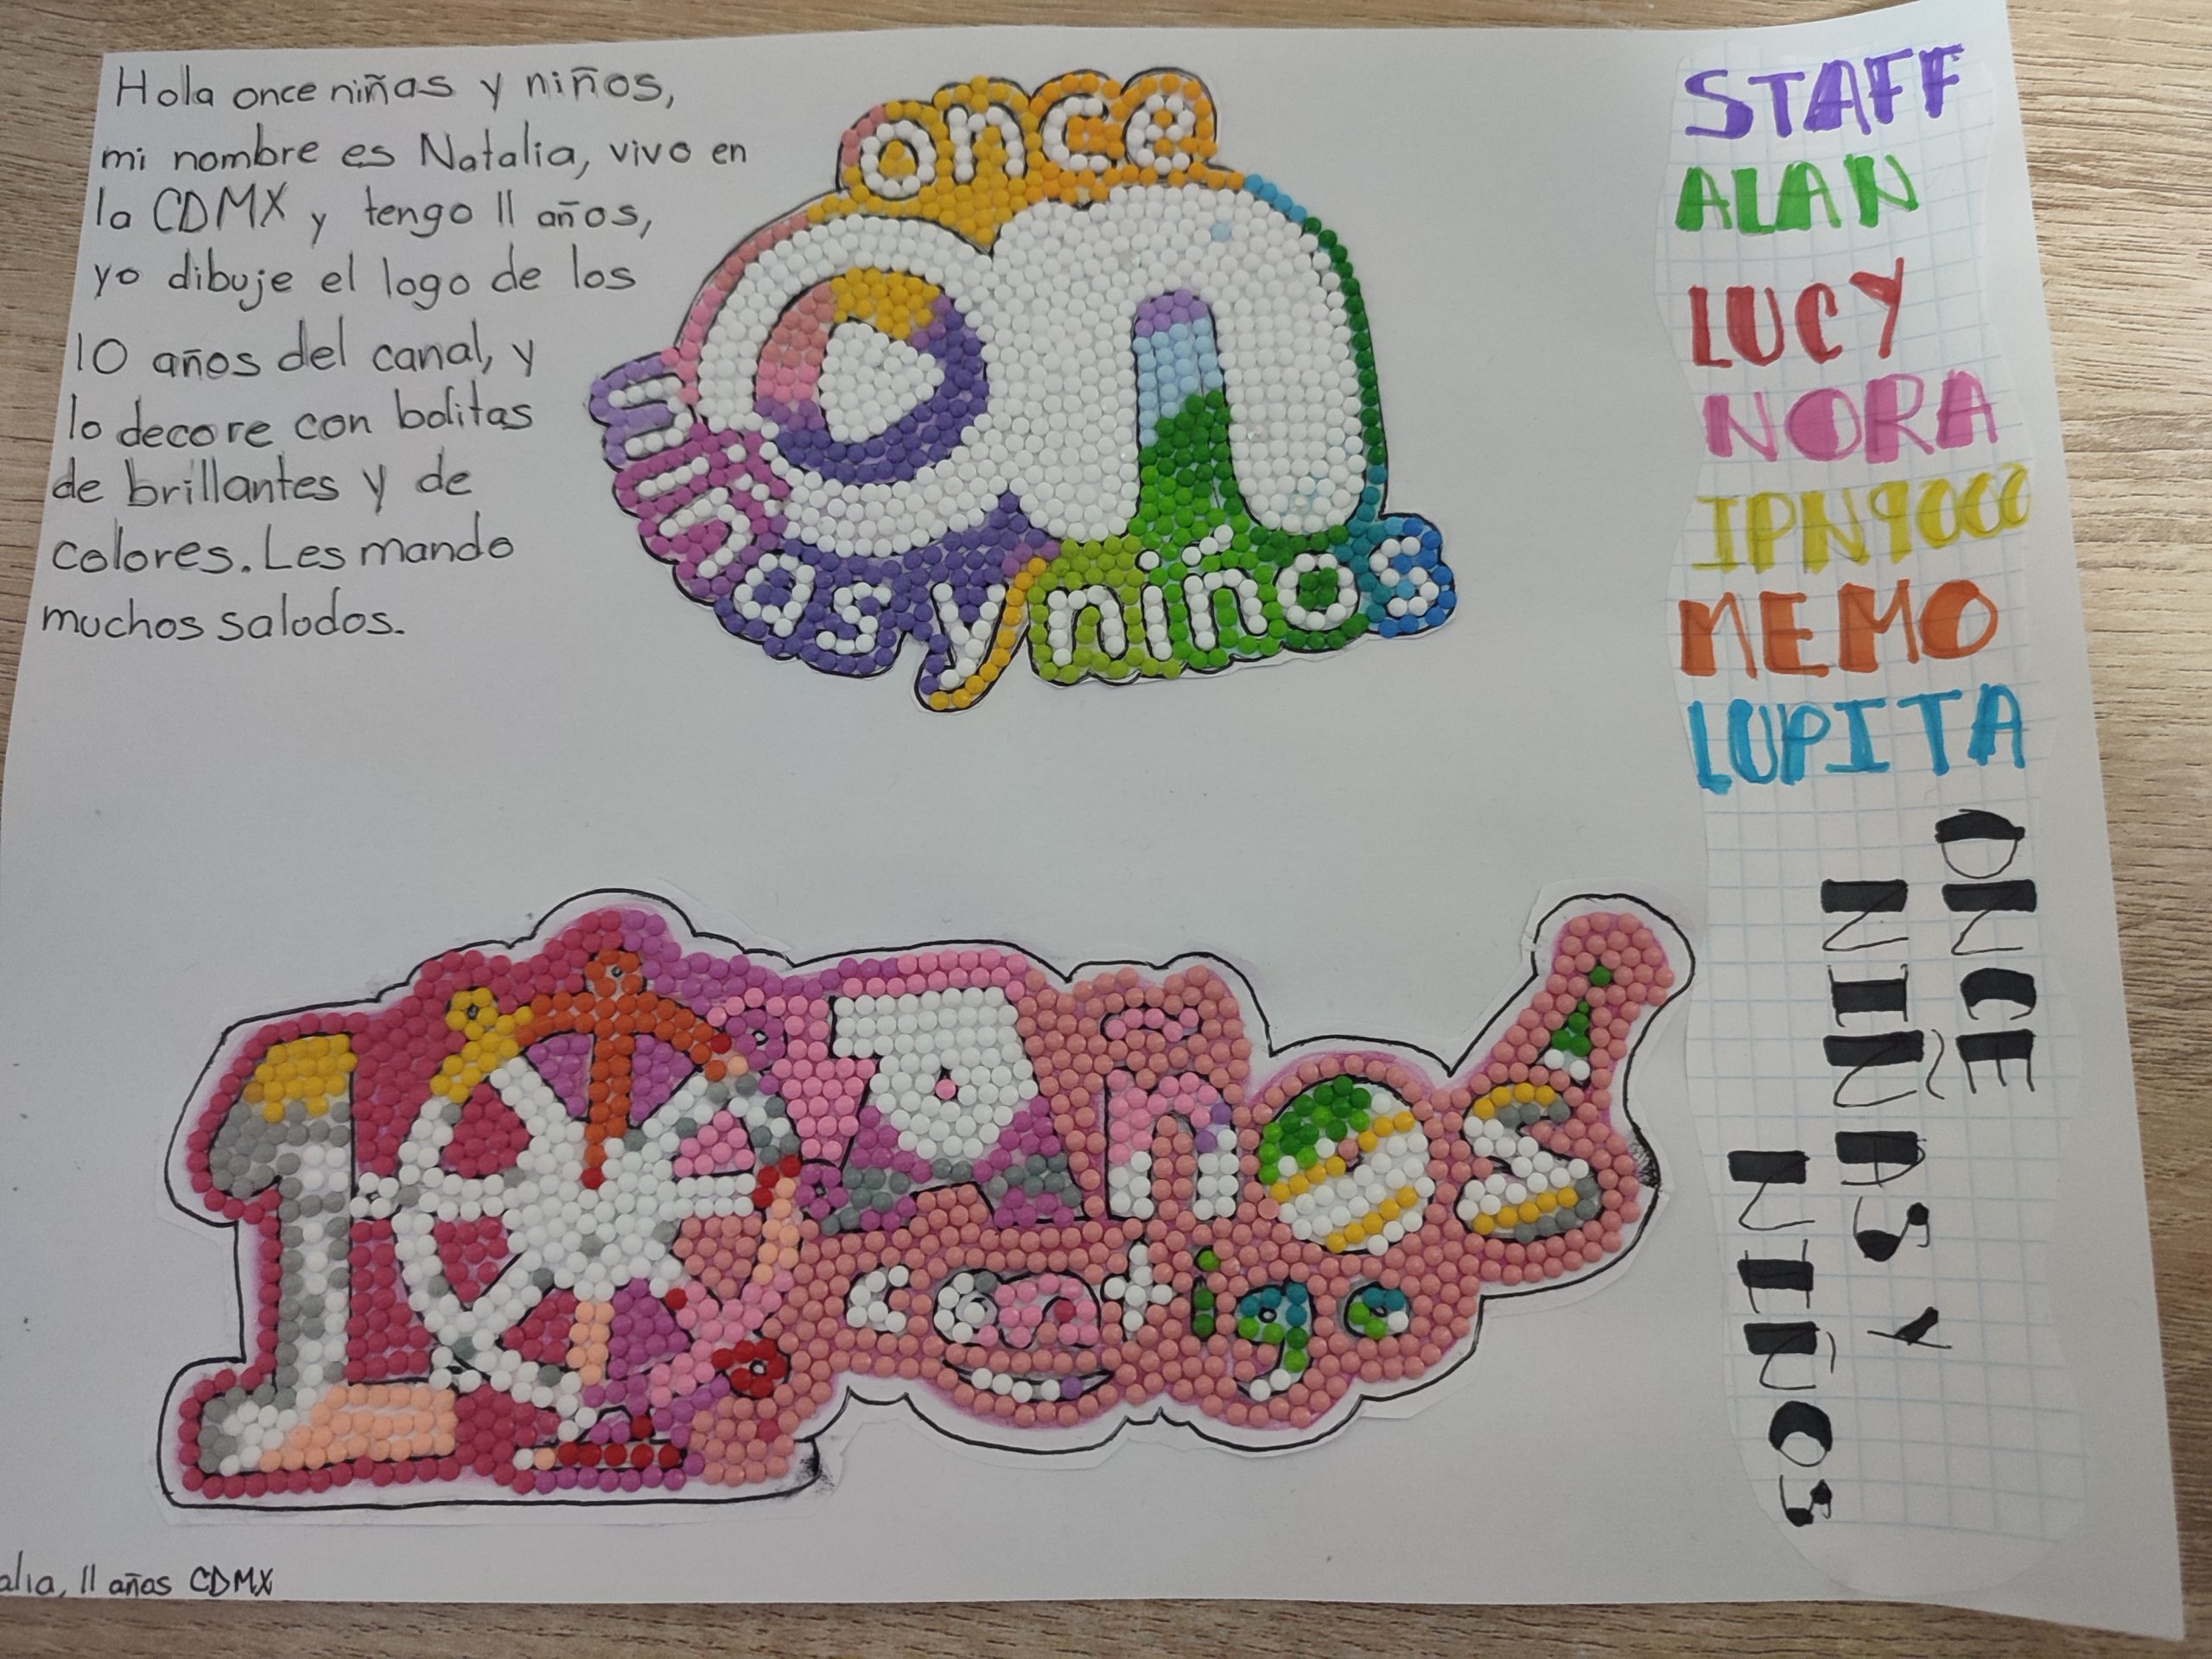 Hola once niñas y niños,
mi nombre es Natalia, vivo en
la CDMX y tengo 11 años,
yo dibuje el logo de los
10 años del canal, y
lo decore con bolitas
de brillantes y de
colores. Les mando
muchos saludos.
once
niñas y niños
STAFF
ALAN
LUCY
NORA
IPN9000
MEMO
LUPITA
ONCE
NIÑAS Y
NIÑOS
10 años
contigo
alia, 11 años CDMX